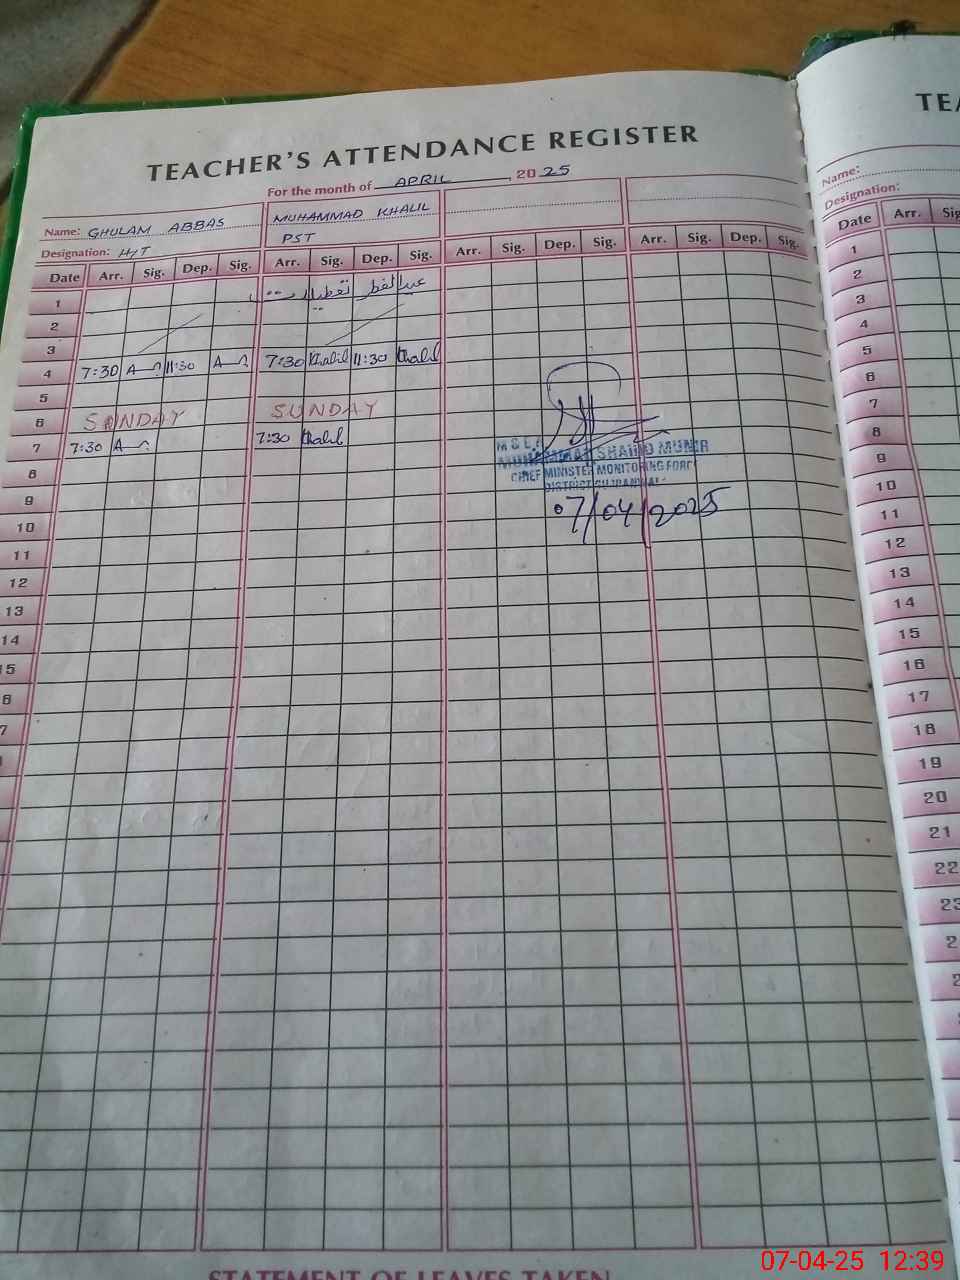 TEACHER'S ATTENDANCE REGISTER
For the month of APRIL, 2025
Name: GHULAM ABBAS
MUHAMMAD KHALIL
Designation: H/T
PST
Date Arr. Sig. Dep. Sig. Arr. Sig. Dep. Sig. Arr. Sig. Dep. Sig. Arr. Sig. Dep. Sig.
1 تعطیلات عیدالفطر
2
3
4 7:30 11:30 7:30 Khalil 11:30 Khalil
5
6 SUNDAY SUNDAY
7 7:30 7:30 Khalil
8
9
10
11
12
13
14
15
6
7
MUHAMMAD SHAHID MUNIR
CHIEF MINISTER MONITORING FORCE
DISTRICT GUJRANWALA
07/04/2025
STATEMENT OF LEAVES TAKEN
TEA
Name:
Designation:
Date Arr. Sig
1
2
3
4
5
6
7
8
9
10
11
12
13
14
15
16
17
18
19
20
21
22
23
2
2
07-04-25 12:39